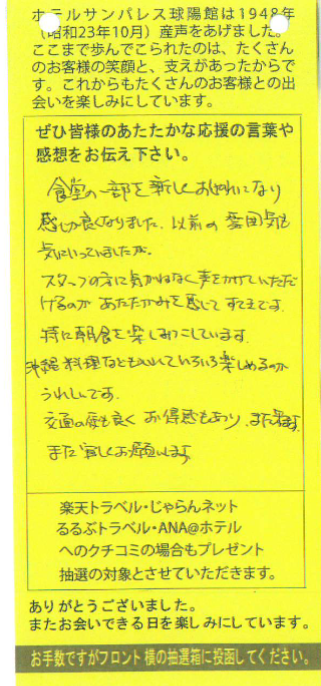 ホテルサンパレス球陽館は1948年
（昭和23年10月）産声をあげました。
ここまで歩んでこられたのは、たくさん
のお客様の笑顔と、支えがあったからで
す。これからもたくさんのお客様との出
会いを楽しみにしています。
ぜひ皆様のあたたかな応援の言葉や
感想をお伝え下さい。
食堂の一部を新しくおしゃれになり
感じが良くなりました。以前の雰囲気も
気にいっていましたが。
スタッフの方に気がねなく声をかけていただ
けるのが あたたかみを感じて すてきです。
特に朝食を楽しみにしています。
沖縄料理なども いろいろ楽しめるのが
うれしいです。
交通の便も良く お得感もあり、また来ます。
また宜しくお願いします
楽天トラベル・じゃらんネット
るるぶトラベル・ANA@ホテル
へのクチコミの場合もプレゼント
抽選の対象とさせていただきます。
ありがとうございました。
またお会いできる日を楽しみにしています。
お手数ですがフロント横の抽選箱に投函してください。